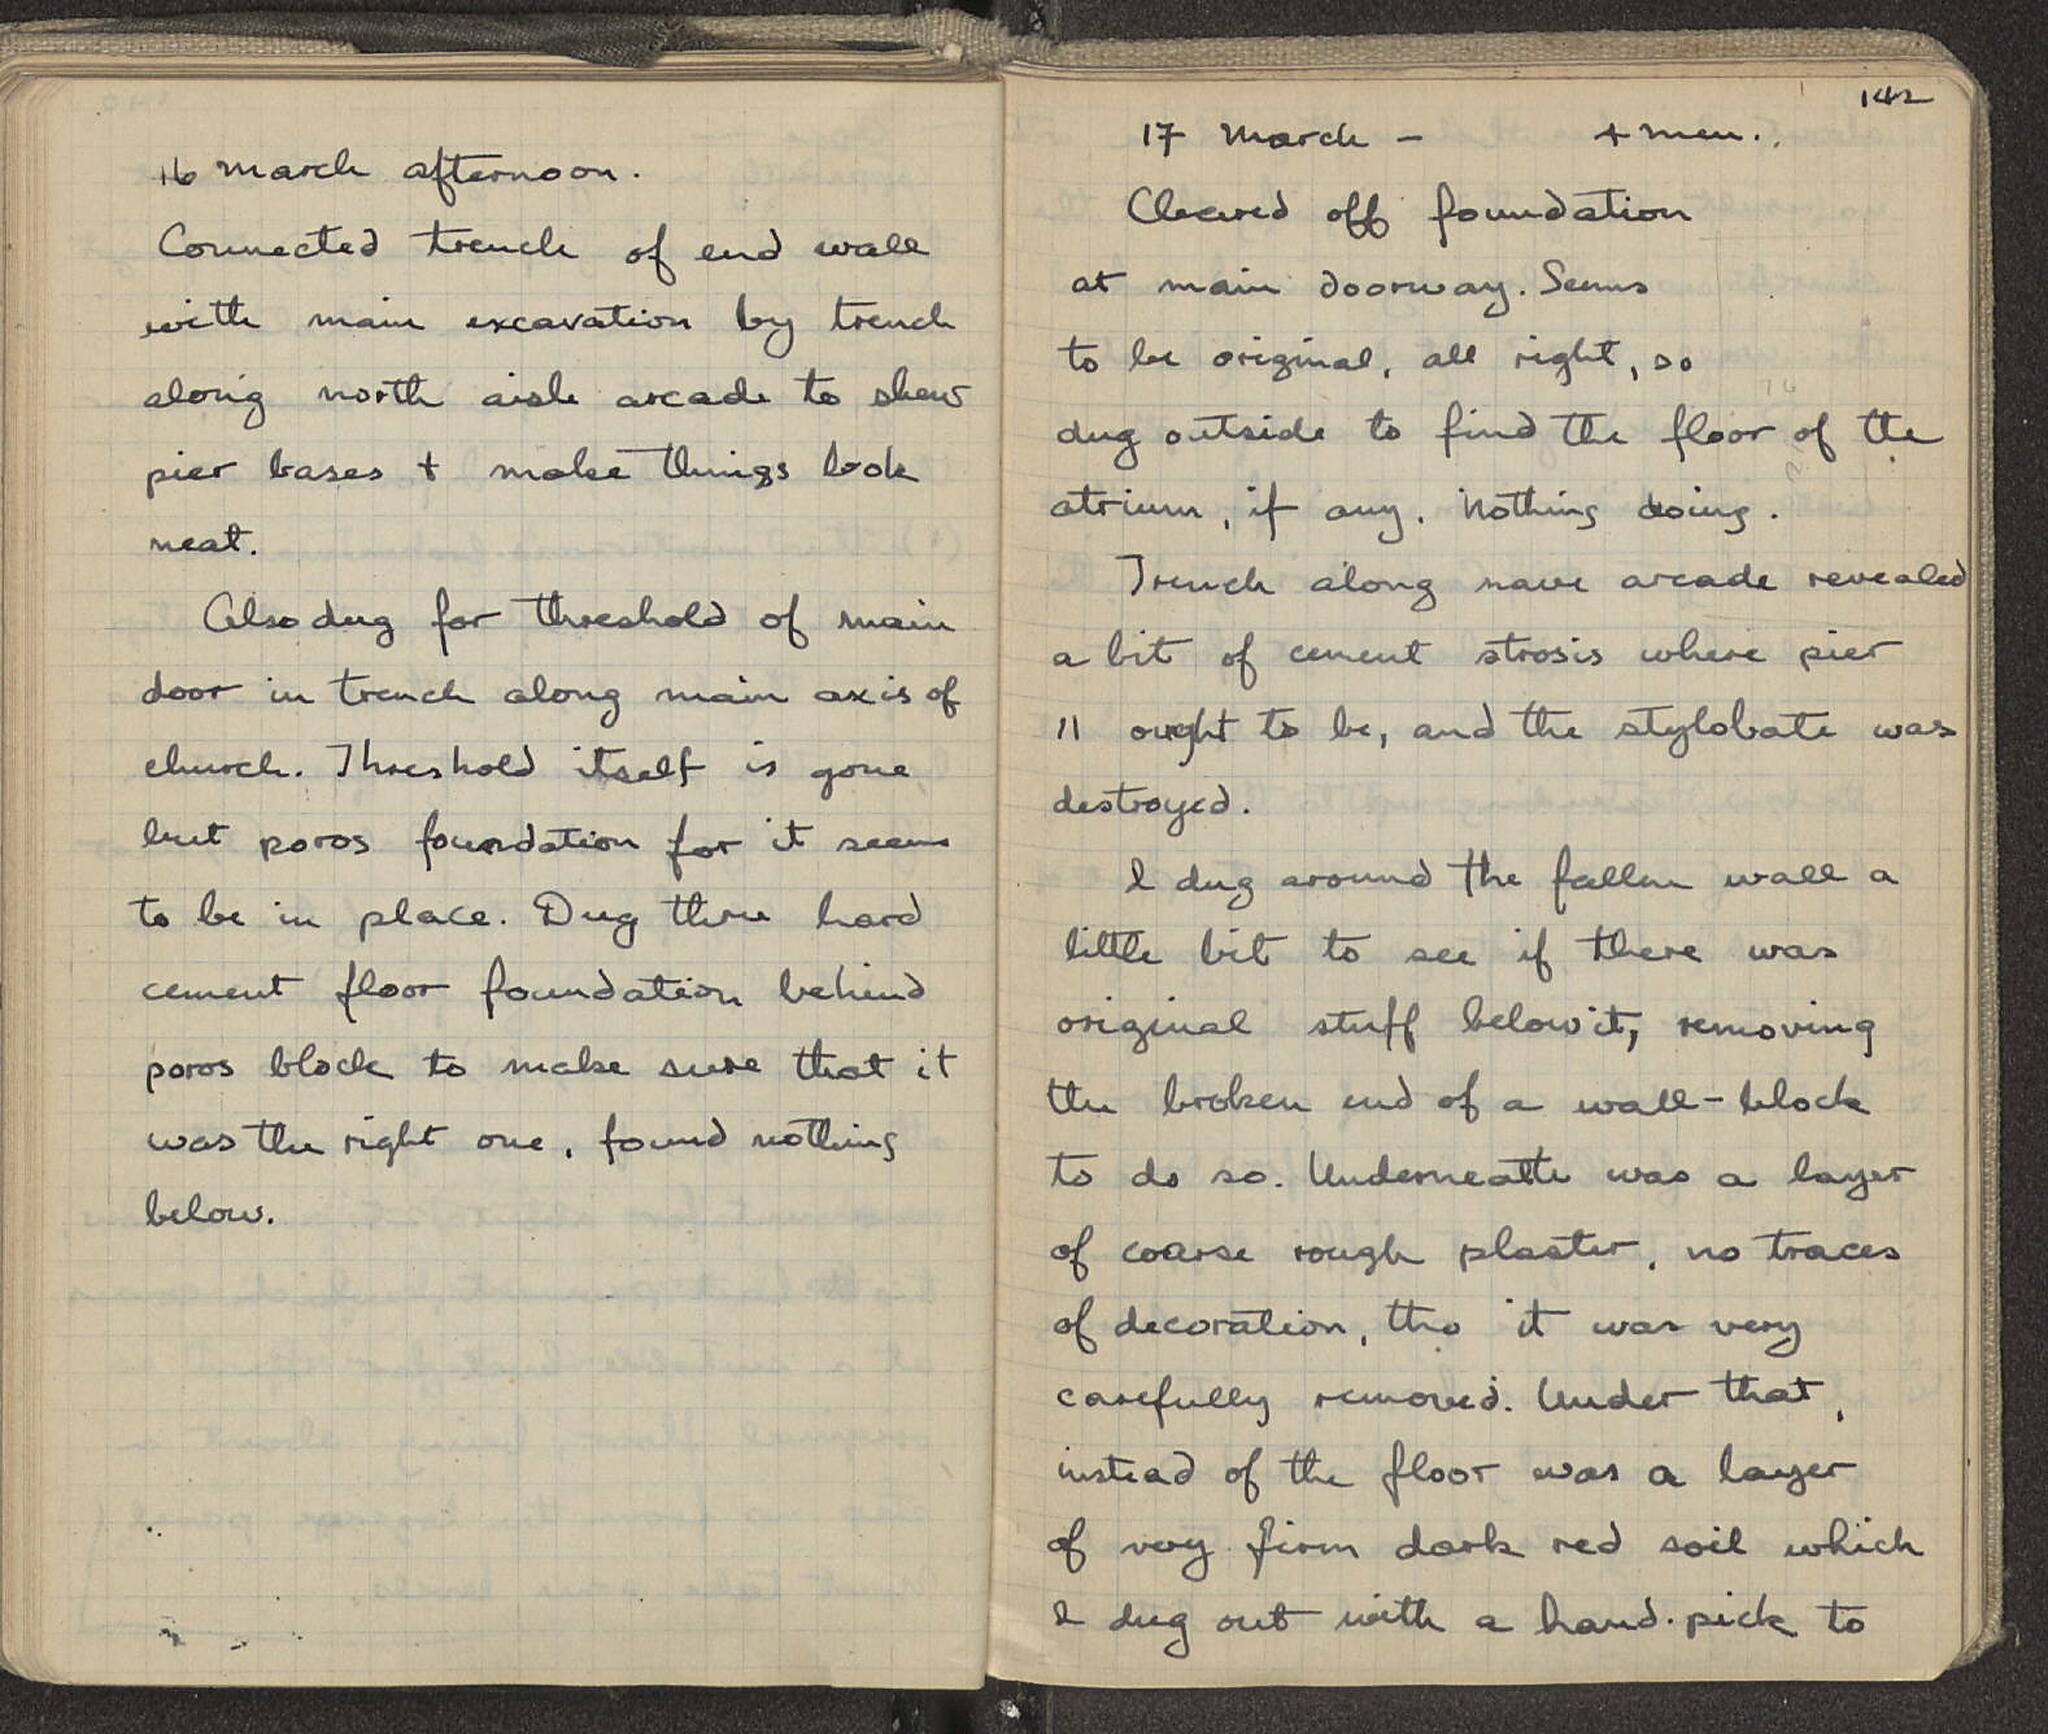 16 March afternoon.
Connected trench of end wall
with main excavation by trench
along north aisle arcade to show
pier bases + make things look
neat.
Also dug for threshold of main
door in trench along main axis of
church. Threshold itself is gone
but poros foundation for it seems
to be in place. Dug thru hard
cement floor foundation behind
poros block to make sure that it
was the right one, found nothing
below.
142
17 March - 4 men.
Cleared off foundation
at main doorway. Seems
to be original, all right, so
dug outside to find the floor of the
atrium, if any. Nothing doing.
Trench along nave arcade revealed
a bit of cement strosis where pier
11 ought to be, and the stylobate was
destroyed.
I dug around the fallen wall a
little bit to see if there was
original stuff below it, removing
the broken end of a wall-block
to do so. Underneath was a layer
of coarse rough plaster, no traces
of decoration, tho it was very
carefully removed. Under that,
instead of the floor was a layer
of very firm dark red soil which
I dug out with a hand-pick to